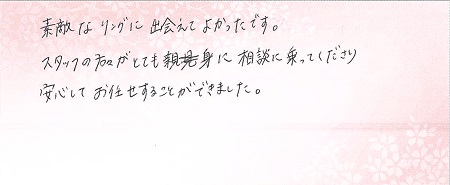 素敵なリングに出会えてよかったです。
スタッフの方々がとても親身に相談に乗ってくださり
安心してお任せすることができました。